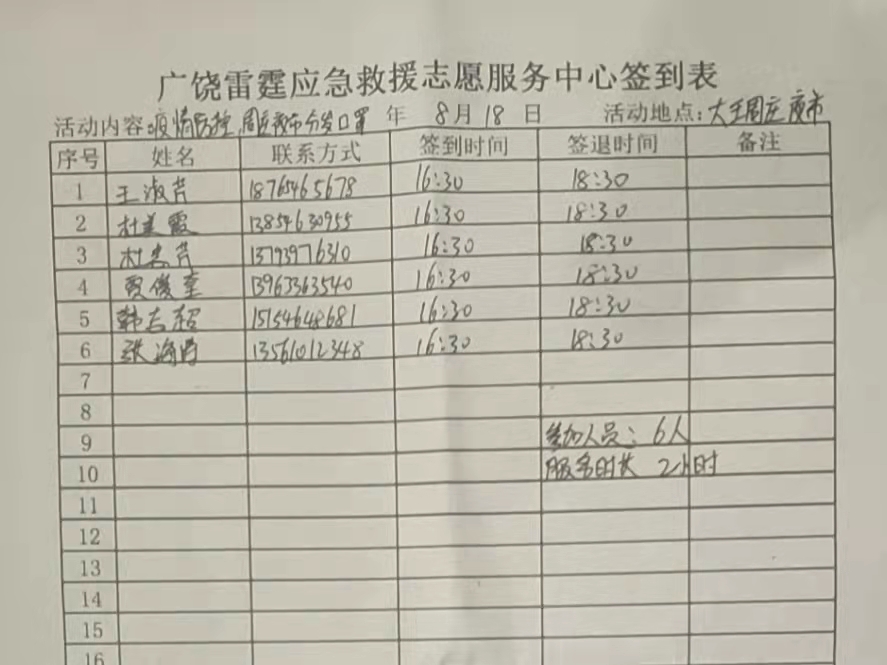 广饶雷霆应急救援志愿服务中心签到表
活动内容:疫情防控,周庄夜市分发口罩 年 8月18日 活动地点:大王周庄夜市
序号 姓名 联系方式 签到时间 签退时间 备注
1 王淑芹 18765465678 16:30 18:30
2 杜美霞 13854630955 16:30 18:30
3 杜忠芹 13793976310 16:30 18:30
4 贾俊奎 13963363540 16:30 18:30
5 韩志超 15154648681 16:30 18:30
6 张海 13561012348 16:30 18:30
7
8
9 参加人员:6人
10 服务时长 2小时
11
12
13
14
15
16